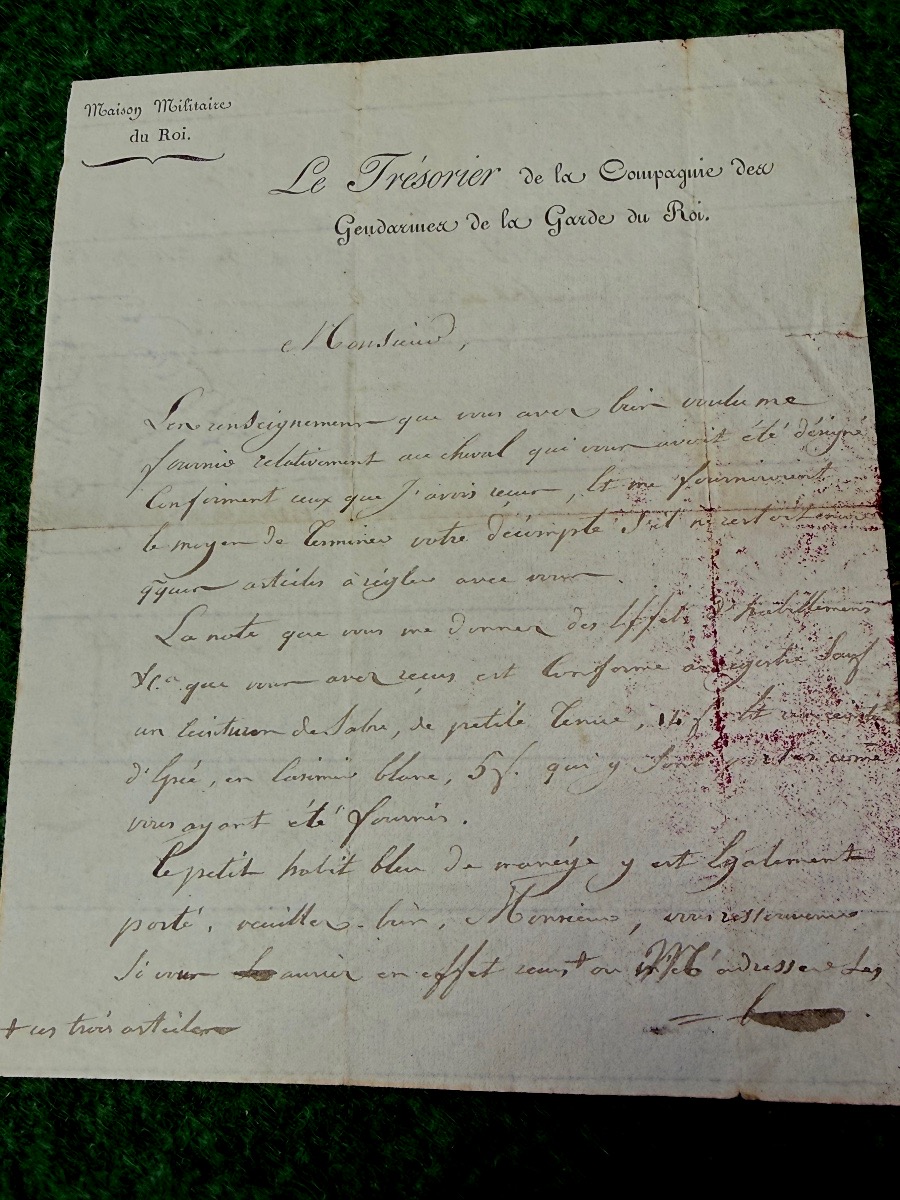 Maison Militaire
du Roi.
Le Trésorier de la Compagnie des
Gendarmes de la Garde du Roi.
Monsieur,
Les renseignemens que vous avez bien voulu me
fournir relativement au cheval qui vous avoit été désigné
Confirment ceux que J'avois reçus, Et me fournissent
le moyen de Terminer votre décompte S'il ne restoit encore
qques articles à régler avec vous.
La note que vous me donnez des Effets d'habillemens
&c.a que vous avez reçus est Conforme au registre Sauf
un Ceinturon de Sabre, de petite Tenue, 14 f. Et
d'Epée, en Casimir blanc, 5 f. qui y Sont comme
vous ayant été fournis.
Le petit habit bleu de manége y est Egalement
porté, veuillez-bien, Monsieur, vous ressouvenir
Si vous auriez en effet reçus + ou M'adresser Les
+ ces trois articles